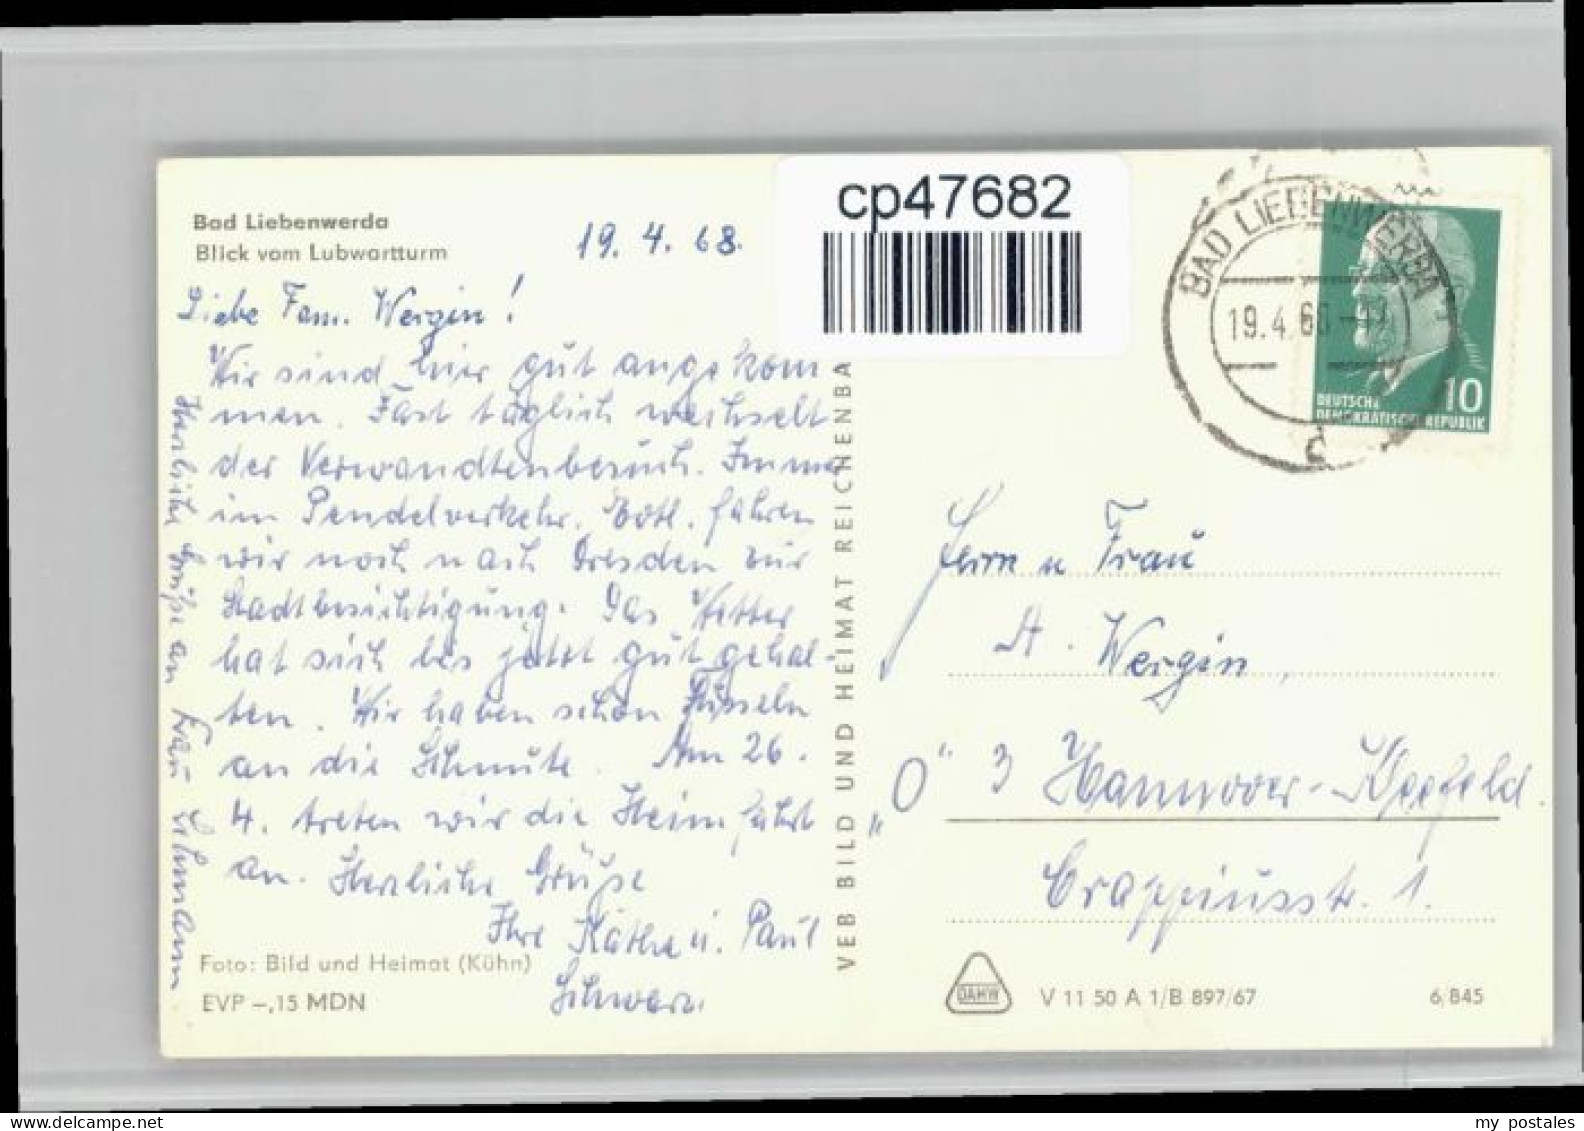 cp47682
Bad Liebenwerda
Blick vom Lubwartturm
19. 4. 68.
Liebe Fam. Wergin!
Wir sind hier gut angekom
men. Fast täglich wechselt
der Verwandtenbesuch. Immer
im Pendelverkehr. Evtl. fahren
wir noch nach Dresden zur
Stadtbesichtigung. Das Wetter
hat sich bis jetzt gut gehal-
ten. Wir haben schon Fusseln
an die Schnute. Am 26.
4. treten wir die Heimfahrt
an. Herzliche Grüße
Ihre Käthe u. Paul
Schwarz.
Herzliche Grüße an Frau Lehmann
Foto: Bild und Heimat (Kühn)
EVP –,15 MDN
VEB BILD UND HEIMAT REICHENBA
BAD LIEBENWERDA
19.4.68
c
DEUTSCHE
DEMOKRATISCHE REPUBLIK
10
Herrn u Frau
A. Wergin,
"O" 3 Hannover-Kleefeld.
Crappiusstr. 1.
DAHW
V 11 50 A 1/B 897/67
6/845
my postales